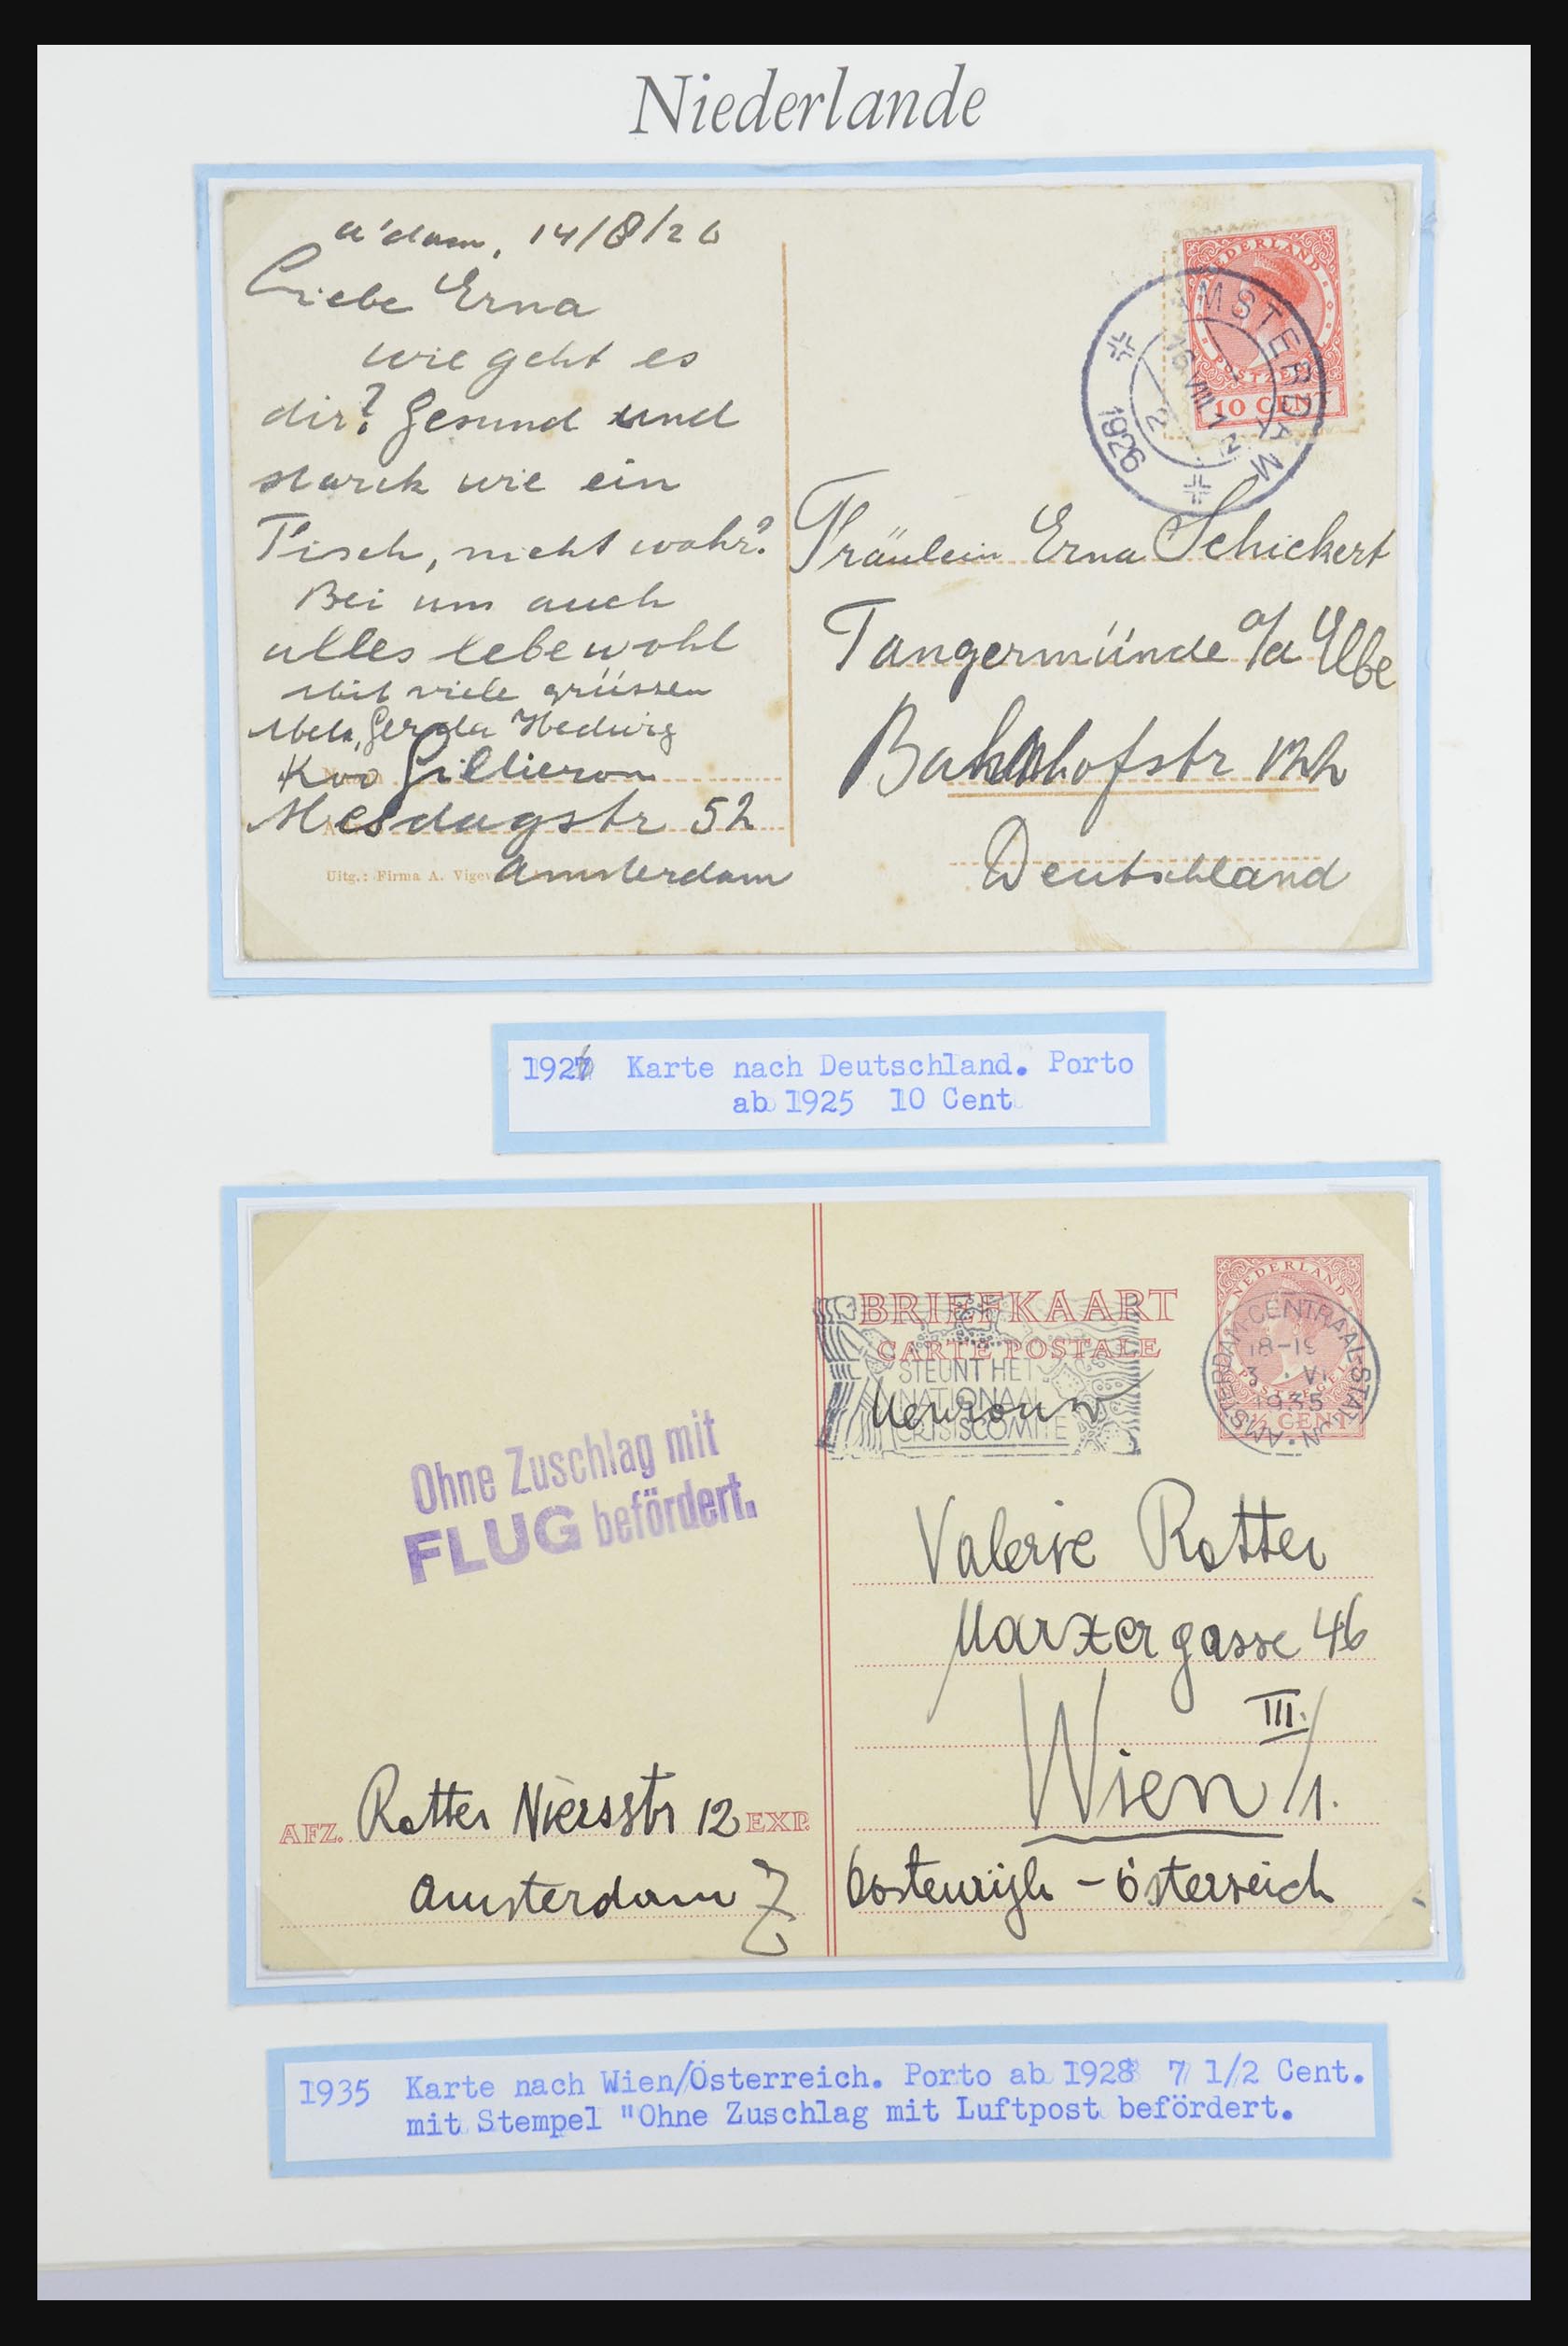 Niederlande
A'dam, 14/8/26
Liebe Erna
wie geht es
dir? Gesund und
starck wie ein
Fisch, nicht wahr?
Bei uns auch
alles lebewohl
Mit viele grüssen
Gerda Hedwig
Koo Gillieron
Mesdagstr 52
Amsterdam
Uitg.: Firma A. Vigev
NEDERLAND
POSTZEGEL
10 CENT
AMSTERDAM
16 VIII
1926
Fräulein Erna Schickert
Tangermünde a/d Elbe
Bahnhofstr
Deutschland
1926 Karte nach Deutschland. Porto
ab 1925 10 Cent
BRIEFKAART
CARTE POSTALE
STEUNT HET
NATIONAAL
CRISISCOMITE
NEDERLAND
POSTZEGEL
½ CENT
AMSTERDAM CENTRAAL STATION
18-19
3 . VI
1935
Mevrouw
Valerie Rotter
Marxergasse 46
III.
Wien /1.
Oostenrijk - Österreich
Ohne Zuschlag mit
FLUG befördert.
AFZ. Rotter Niersstr 12 EXP.
Amsterdam Z
1935 Karte nach Wien/Österreich. Porto ab 1928 7 1/2 Cent.
mit Stempel "Ohne Zuschlag mit Luftpost befördert.